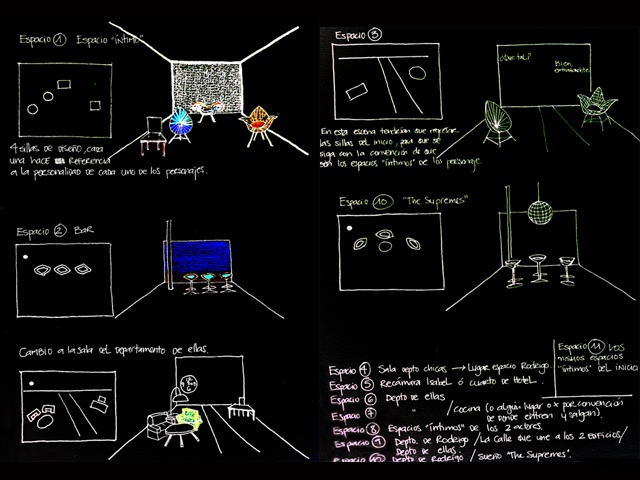 Espacio 1 Espacio "íntimo"
4 sillas de diseño, cada
una hace referencia
a la personalidad de cada uno de los personajes.
Espacio 2 BAR
Cambio a la sala del departamento de ellas.
Espacio 3
¿Que tal?
Bien,
En esta escena tendrían que regresar
las sillas del inicio, para que se
siga con la convención de que
son los espacios "íntimos" de los personaje.
Espacio 10 "The Supremes"
Espacio 11 Los
mismos espacios
"íntimos" del inicio
Espacio 4 Sala depto chicas → Lugar espacio Rodrigo.
Espacio 5 Recámara Isabel ó cuarto de Hotel.
Espacio 6 Depto de ellas
Espacio 7 " /cocina (o algún lugar o x por convención
de donde entren y salgan).
Espacio 8 Espacios "íntimos" de los 2 actores.
Espacio 9 Depto. de Rodrigo / La calle que une a los 2 edificios/
Depto. de ellas.
Espacio 10 Depto de Rodrigo / Sueño "The Supremes".